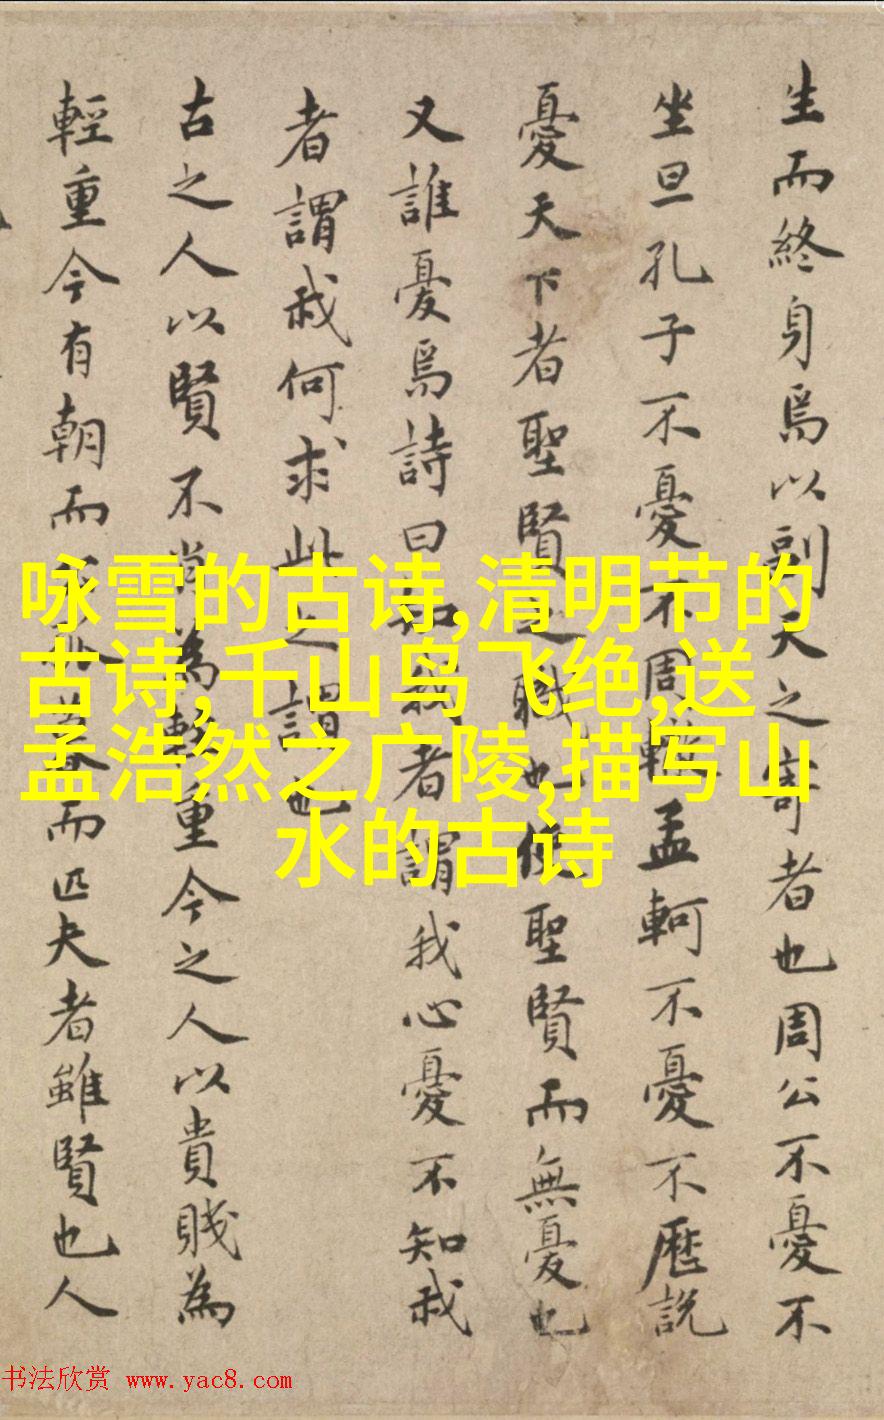 生而終身焉以副天之寄者也周公不憂不
坐旦孔子不憂不周轍孟軻不憂不歷說
憂天下者聖賢之職也使聖賢而無憂也
又誰憂焉詩曰知我者謂我心憂不知我
者謂我何求此之謂也
古之人以賢不肖為輕重今之人以貴賤為
輕重今有朝而而匹夫者雖賢也人
咏雪的古诗,清明节的
古诗,千山鸟飞绝,送
孟浩然之广陵,描写山
水的古诗
书法欣赏 www.yac8.com